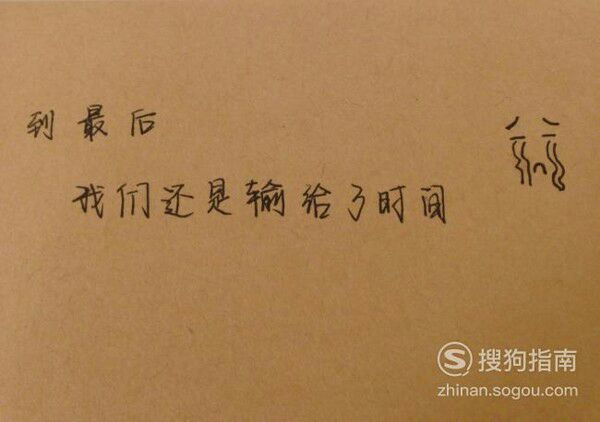 到最后
我们还是输给了时间
搜狗指南
zhinan.sogou.com